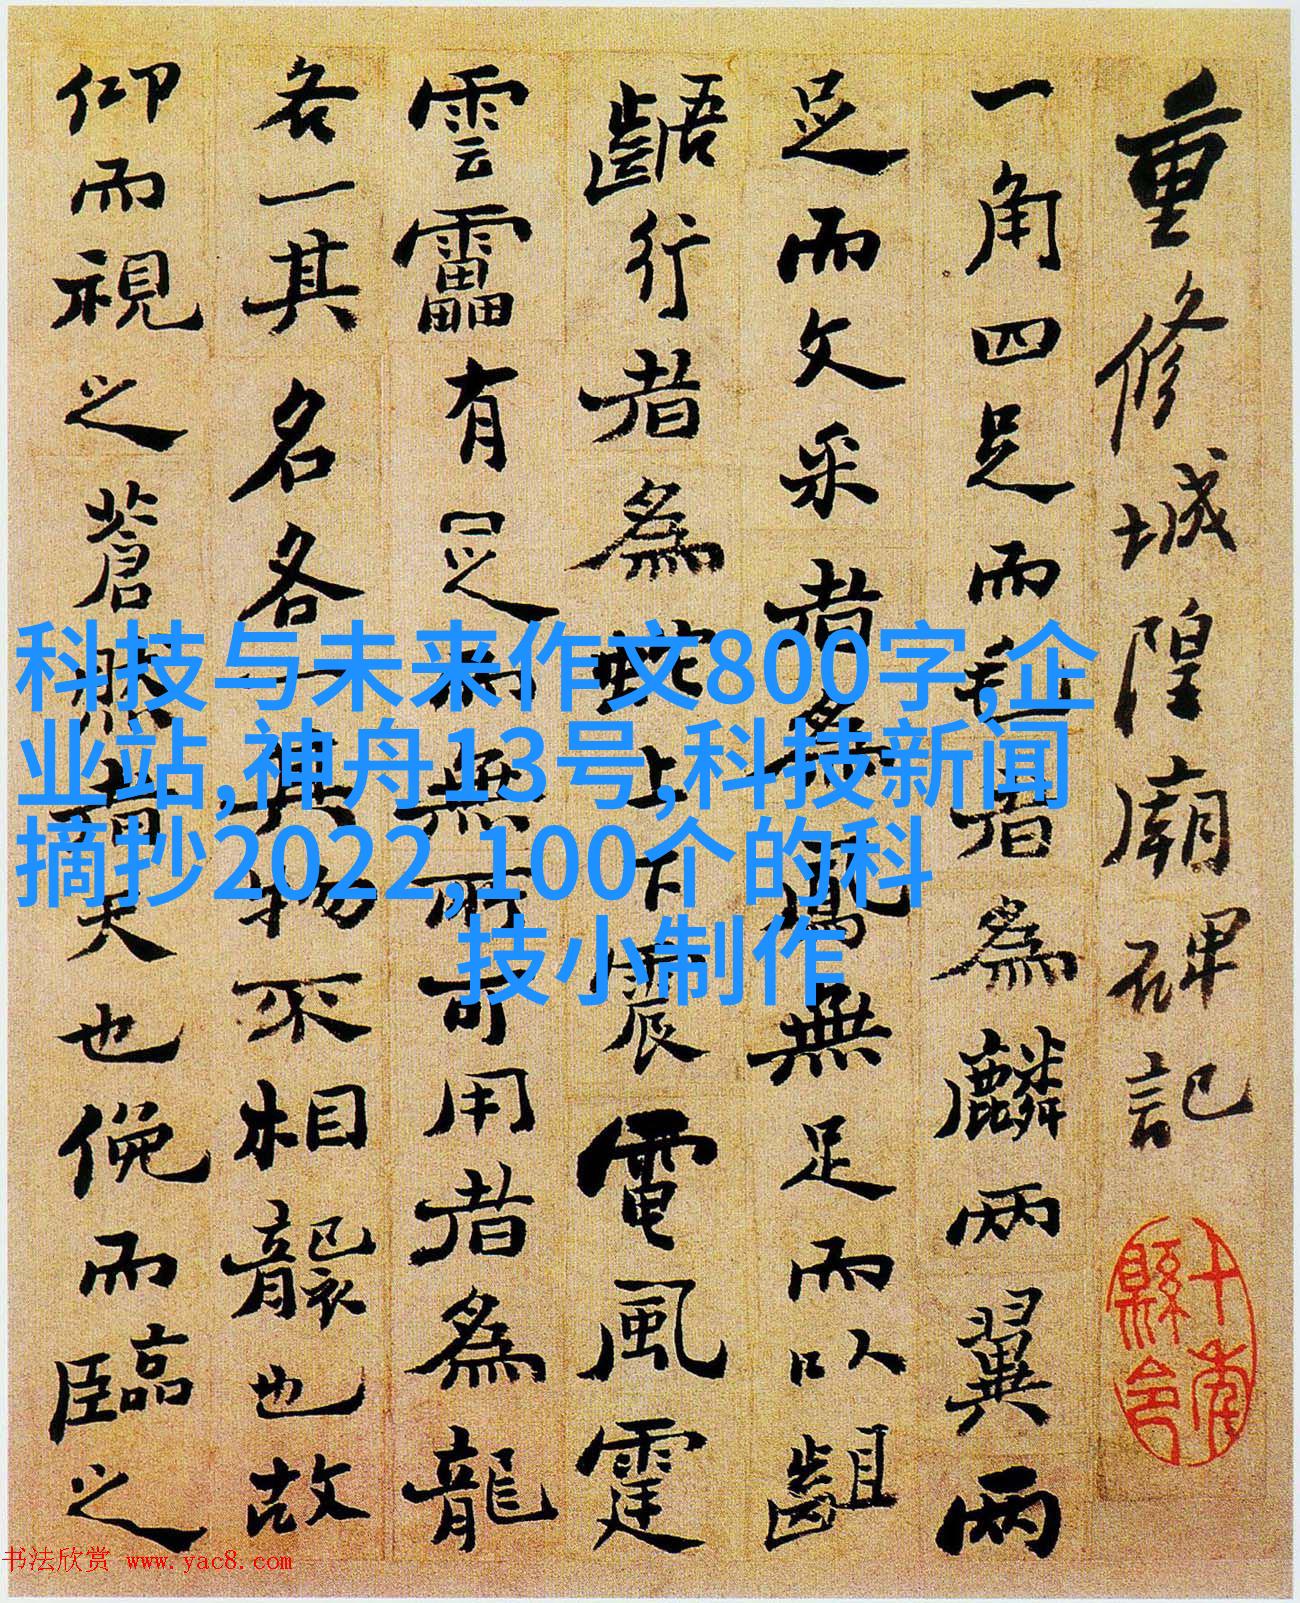 重修城隍廟碑記
一角四足而毛者為麟兩翼兩
足而文采者為鳳無足而以齟
齬行者為蛇上下震電風霆
雲靁有足為無所可用者為龍
各一其名各一其物不相襲也故
仰而視之蒼然者天也俛而臨之
科技与未来作文800字,企
业站,神舟13号,科技新闻
摘抄2022,100个的科
技小制作
书法欣赏 www.yac8.com